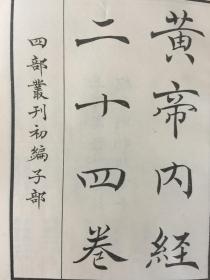 黃帝內経
二十四卷
四部叢刊初編子部